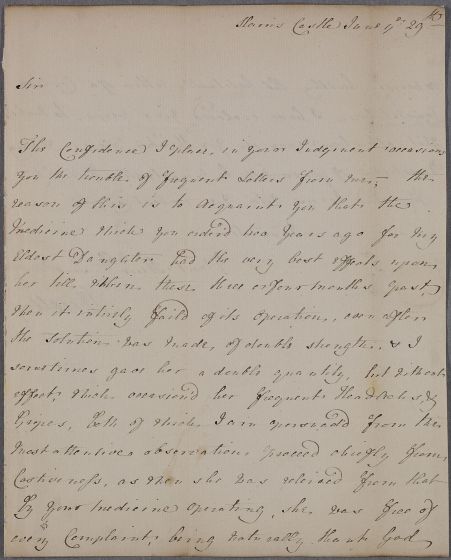 Slains Castle June ye 29th
Sir
The Confidence I place in your Judgment occasions
you the trouble of frequent Letters from me, the
reason of this is to Acquaint you that the
Medicine which you order'd two Years ago for my
Eldest Daughter had the very best effects upon
her till within these three or four months past,
when it intirely fail'd of its Operation, even after
the Solution was made of double strength, & I
sometimes gave her a double quantity, but without
effect, which occasion'd her frequent Headachs, &
Gripes, both of which I am perswaded from the
most attentive observation proceed chiefly from
Costiveness, as when she was releived from that
by your medicine operating, she was free of
every Complaint, being naturally, thank God